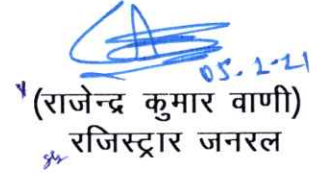 05.2-21
(राजेन्द्र कुमार वाणी)
रजिस्ट्रार जनरल